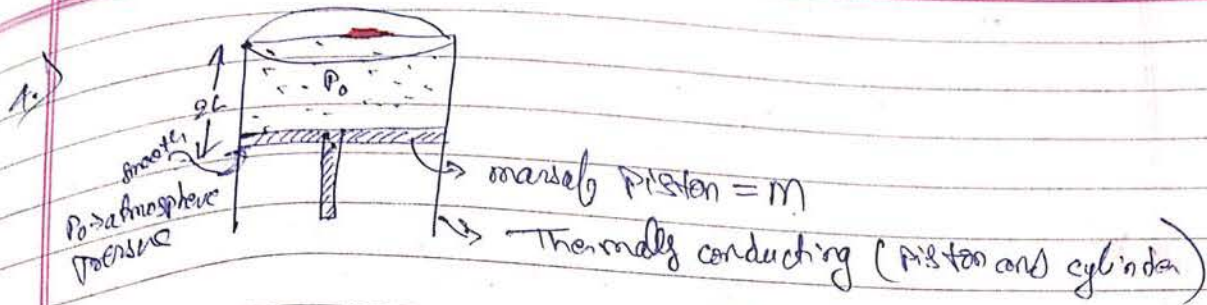 1.)
P₀
2L
smooth
P₀ → atmosphere
mass of piston = M
Thermally conducting (piston and cylinder)